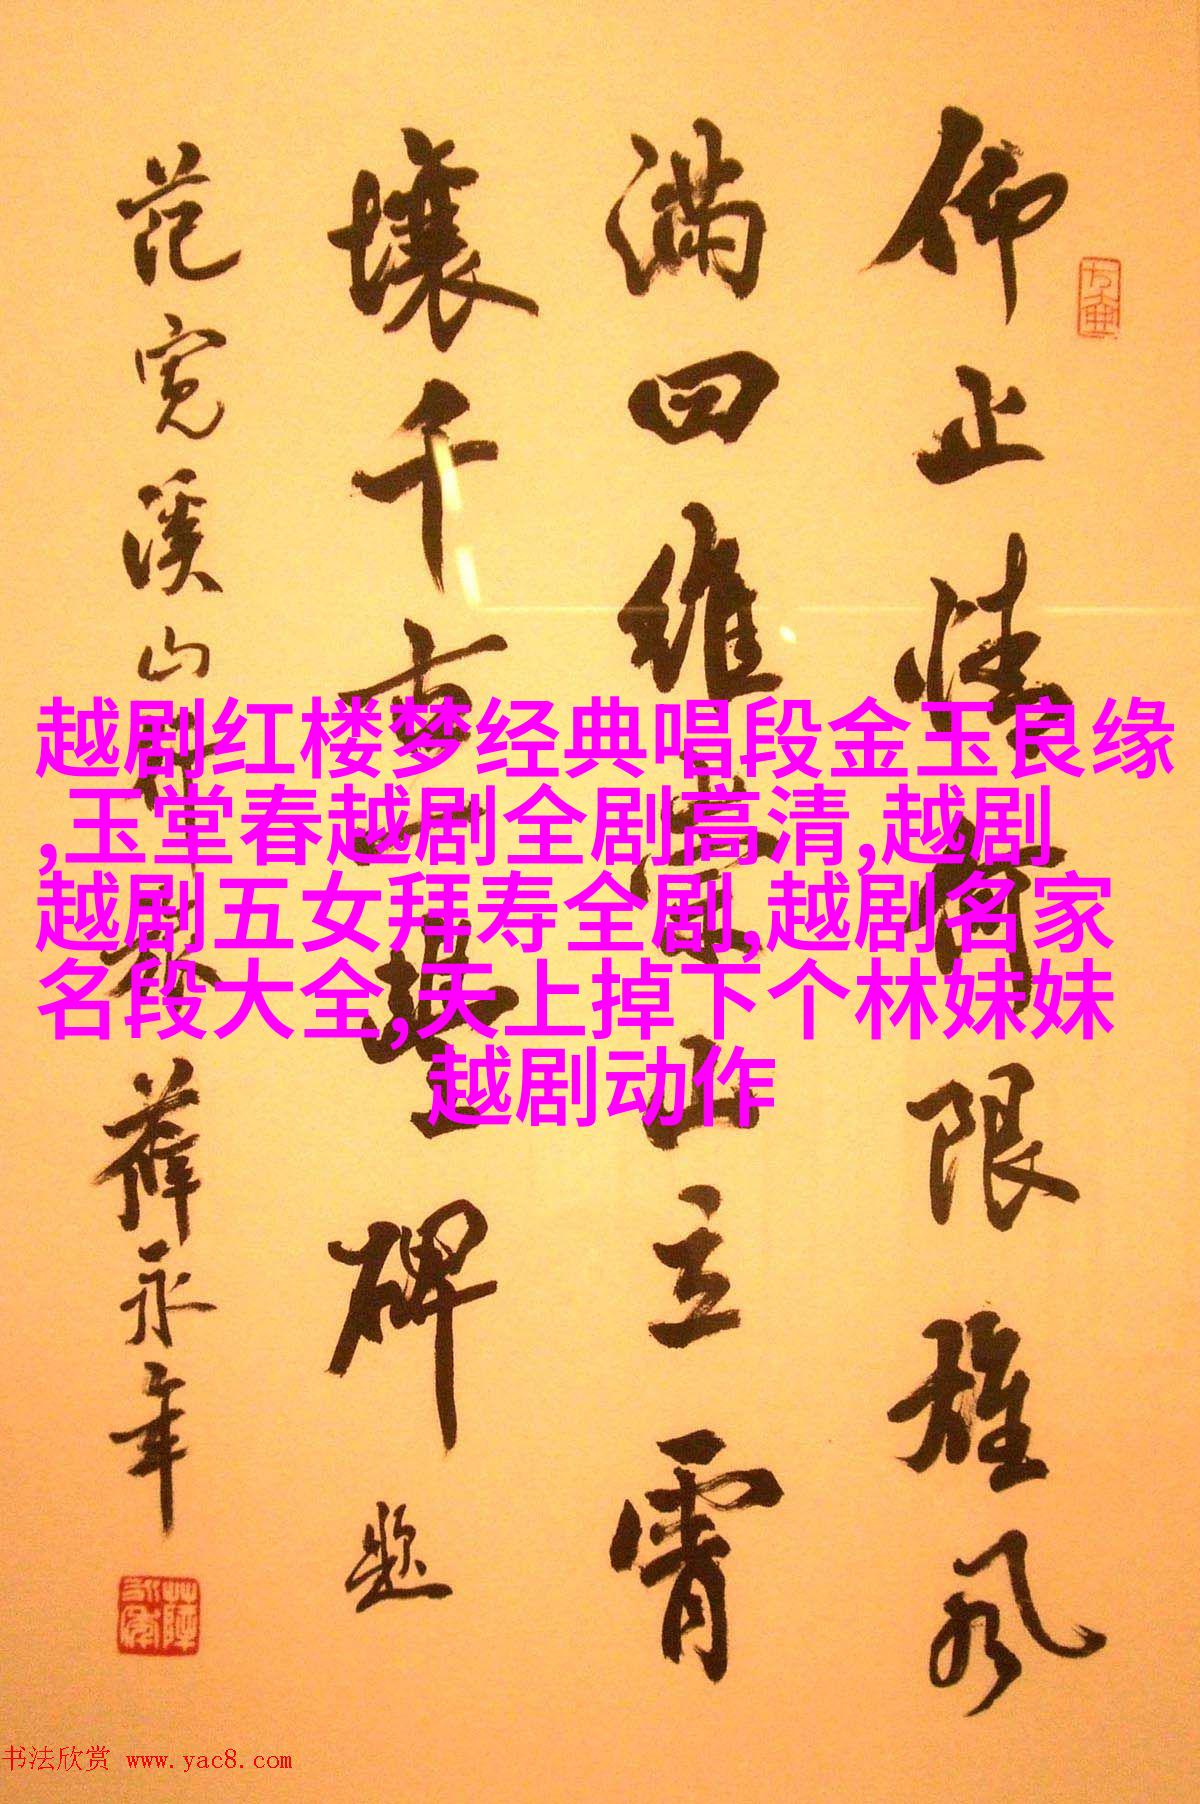 越剧红楼梦经典唱段金玉良缘
,玉堂春越剧全剧高清,越剧
越剧五女拜寿全剧,越剧名家
名段大全,天上掉下个林妹妹
越剧动作
仰止情限雄风
满四维山立霄
壤千古一碑 题
范宽溪山行 薛永年
书法欣赏 www.yac8.com